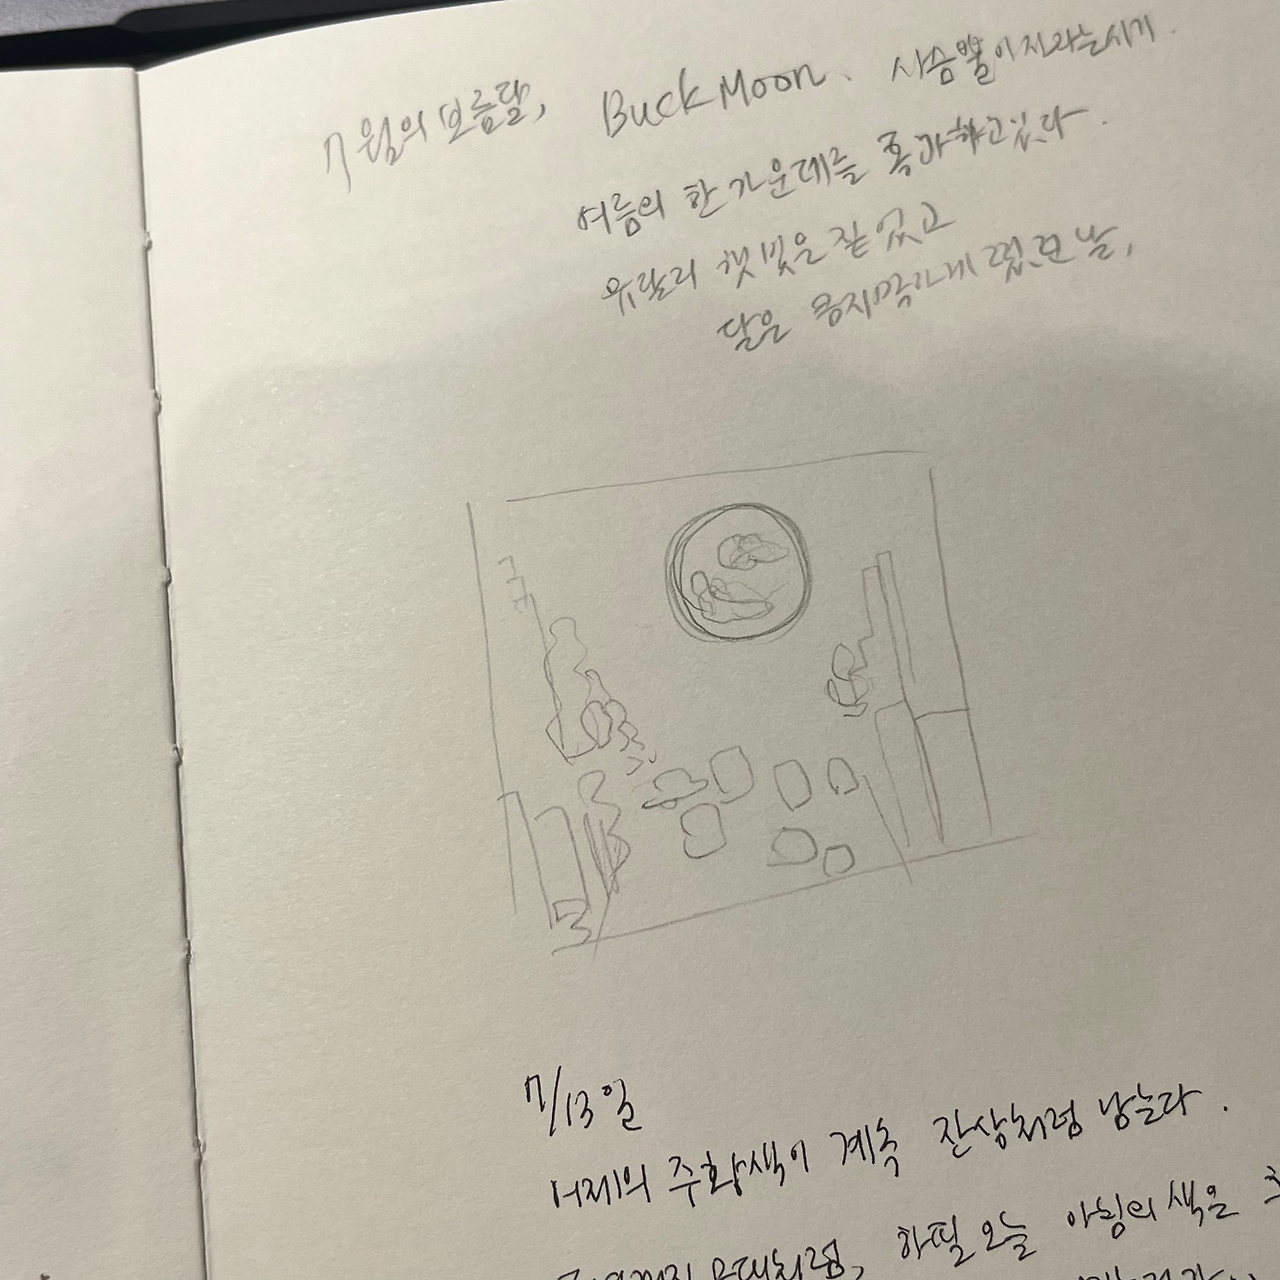 7월의 보름달, Buck Moon. 사슴뿔이 자라는 시기.
여름의 한 가운데를 통과하고 있다.
유달리 햇빛은 짙었고
달은 큼지막하게 떴던 날,
7/13일
어제의 주황색이 계속 잔상처럼 남는다.
처럼, 하필 오늘 아침의 색은